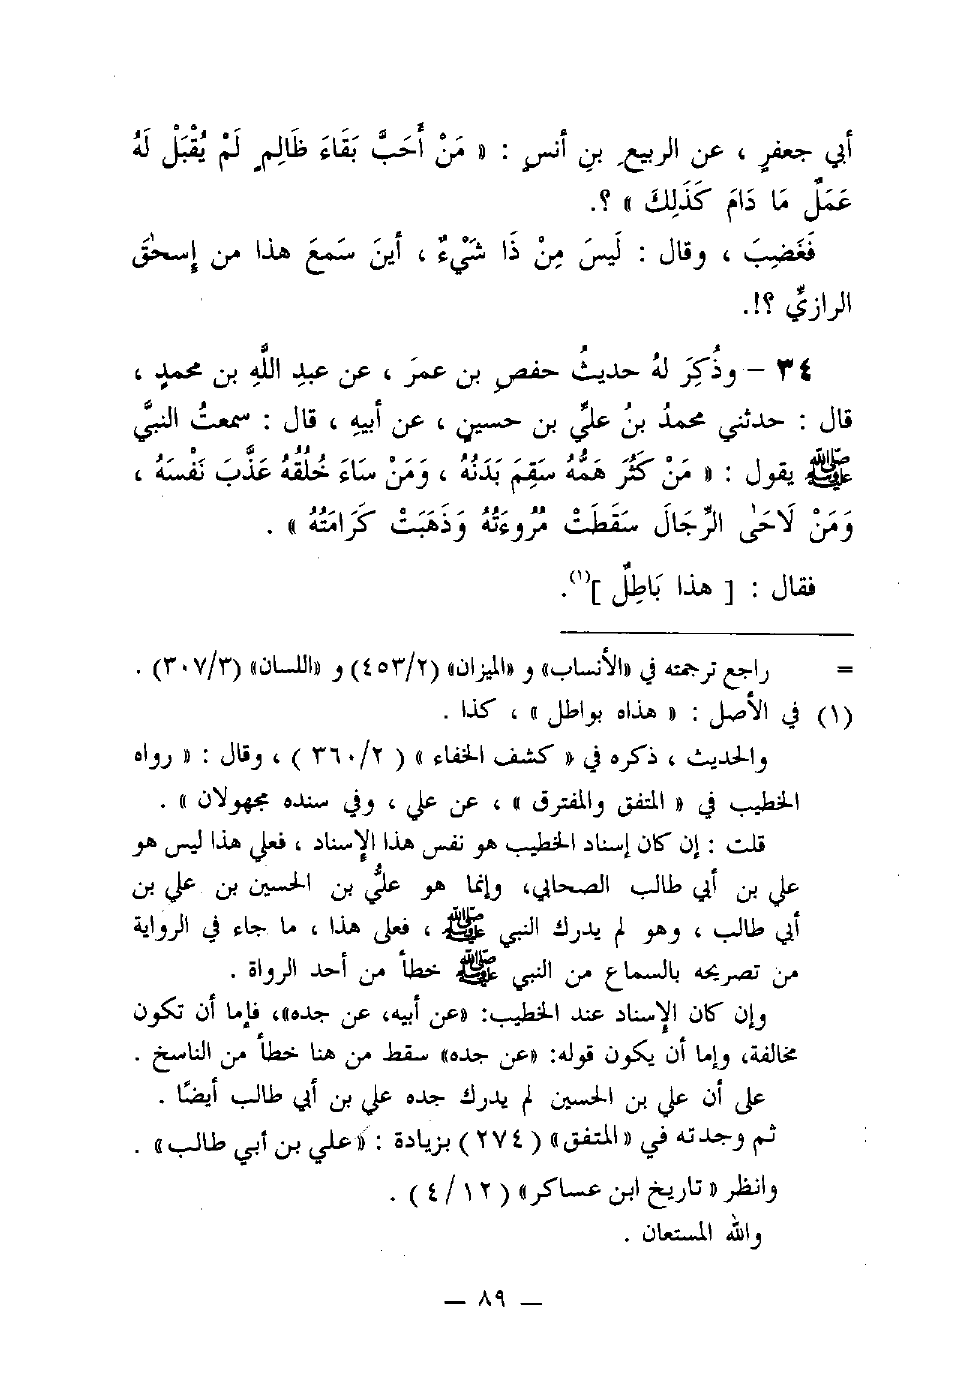 أبي جعفرٍ ، عن الربيعِ بنِ أنسٍ : « مَنْ أَحَبَّ بَقَاءَ ظَالِمٍ لَمْ يُقْبَلْ لَهُ
عَمَلٌ مَا دَامَ كَذَلِكَ » ؟.
فَغَضِبَ ، وقال : لَيسَ مِنْ ذَا شَيْءٌ ، أينَ سَمعَ هذا من إِسحٰقَ
الرازيِّ ؟!.
٣٤ – وذُكِرَ لهُ حديثُ حفصِ بن عمرَ ، عن عبدِ اللَّهِ بن محمدٍ ،
قال : حدثني محمدُ بنُ عليِّ بن حسينٍ ، عن أبيهِ ، قال : سمعتُ النبيَّ
ﷺ يقول : « مَنْ كَثُرَ هَمُّهُ سَقِمَ بَدَنُهُ ، وَمَنْ سَاءَ خُلُقُهُ عَذَّبَ نَفْسَهُ ،
وَمَنْ لَاحَى الرِّجَالَ سَقَطَتْ مُرُوءَتُهُ وَذَهَبَتْ كَرَامَتُهُ » .
فقال : [ هذا بَاطِلٌ ](١).
= راجع ترجمته في «الأنساب» و «الميزان» (٤٥٣/٢) و «اللسان» (٣٠٧/٣) .
(١) في الأصل : « هذاه بواطل » ، كذا .
والحديث ، ذكره في « كشف الخفاء » ( ٣٦٠/٢ ) ، وقال : « رواه
الخطيب في « المتفق والمفترق » ، عن علي ، وفي سنده مجهولان » .
قلت : إن كان إسناد الخطيب هو نفس هذا الإسناد ، فعلي هذا ليس هو
علي بن أبي طالب الصحابي، وإنما هو عليُّ بن الحسين بن علي بن
أبي طالب ، وهو لم يدرك النبي ﷺ ، فعلى هذا ، ما جاء في الرواية
من تصريحه بالسماع من النبي ﷺ خطأ من أحد الرواة .
وإن كان الإسناد عند الخطيب: «عن أبيه، عن جده»، فإما أن تكون
مخالفة، وإما أن يكون قوله: «عن جده» سقط من هنا خطأ من الناسخ .
على أن علي بن الحسين لم يدرك جده علي بن أبي طالب أيضًا .
ثم وجدته في «المتفق» ( ٢٧٤ ) بزيادة : «علي بن أبي طالب» .
وانظر « تاريخ ابن عساكر» ( ٤/١٢ ) .
والله المستعان .
— ٨٩ —